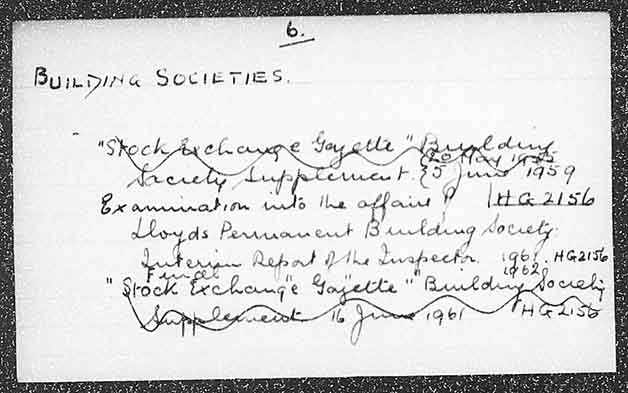 6.
BUILDING SOCIETIES.
"Stock Exchange Gazette" Building
{20 May 1955
Society Supplement. {5 June 1959
Examination into the affairs of HG2156
Lloyds Permanent Building Society.
Interim Report of the Inspector. 1961. HG2156
Final 1962
"Stock Exchange Gazette" "Building Society
Supplement 16 June 1961 HG2156